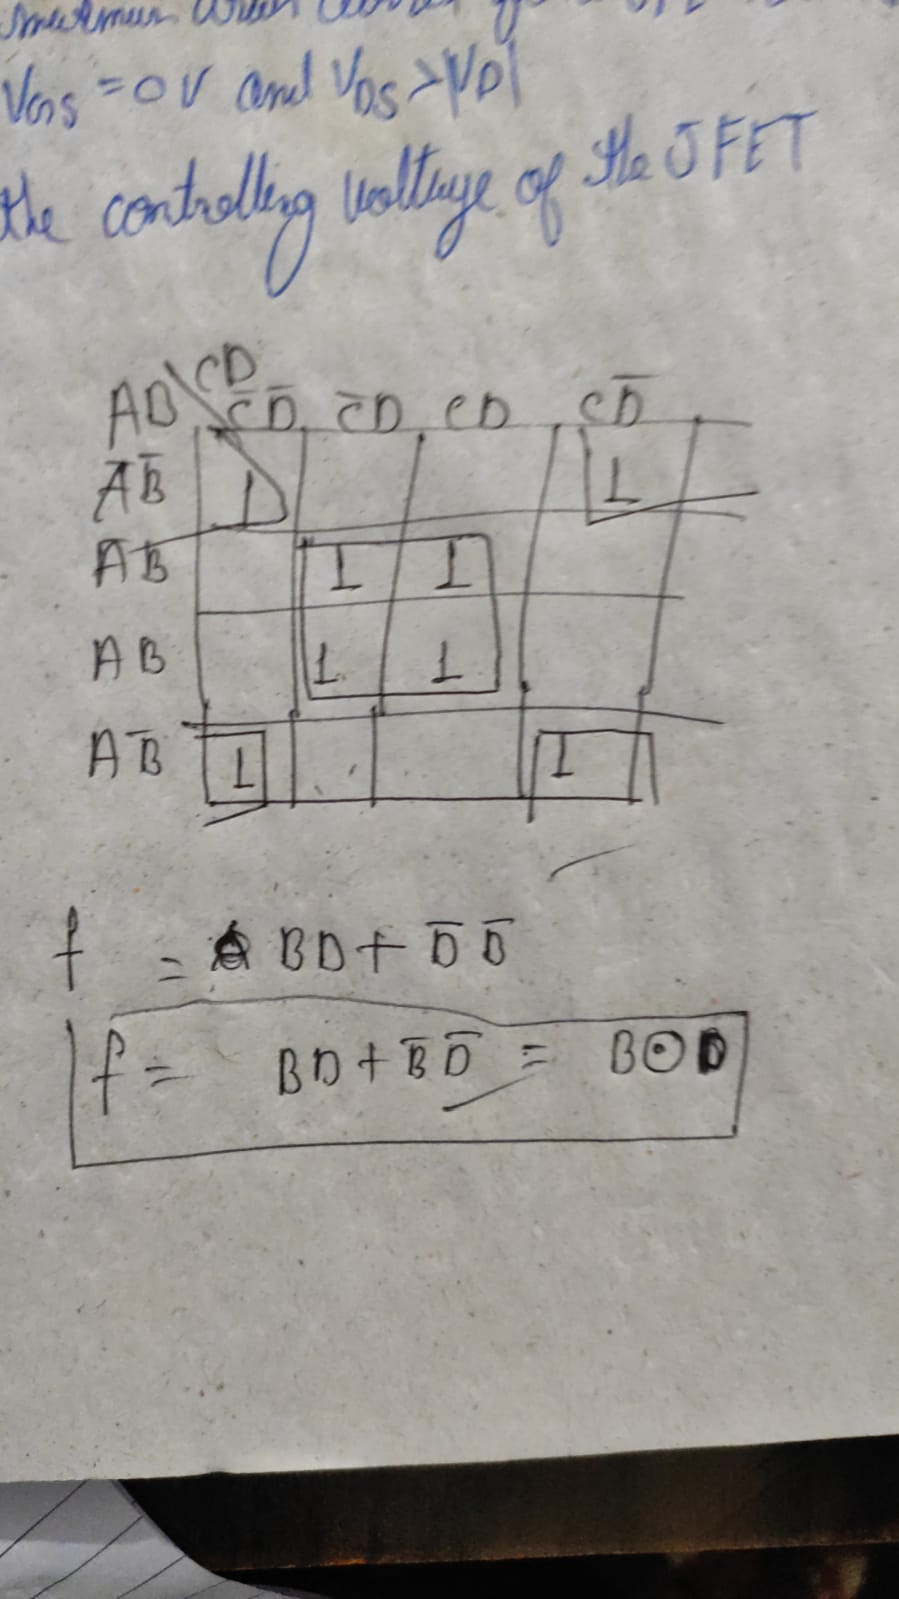 V_GS = 0 V and V_DS > |V_P|
the controlling voltage of the JFET
CD
AB C̅D̅ C̅D CD CD̅
A̅B̅ 1 1
A̅B 1 1
AB 1 1
AB̅ 1 1
f = BD + D̅ B̅
f = BD + B̅ D̅ = B⊙D